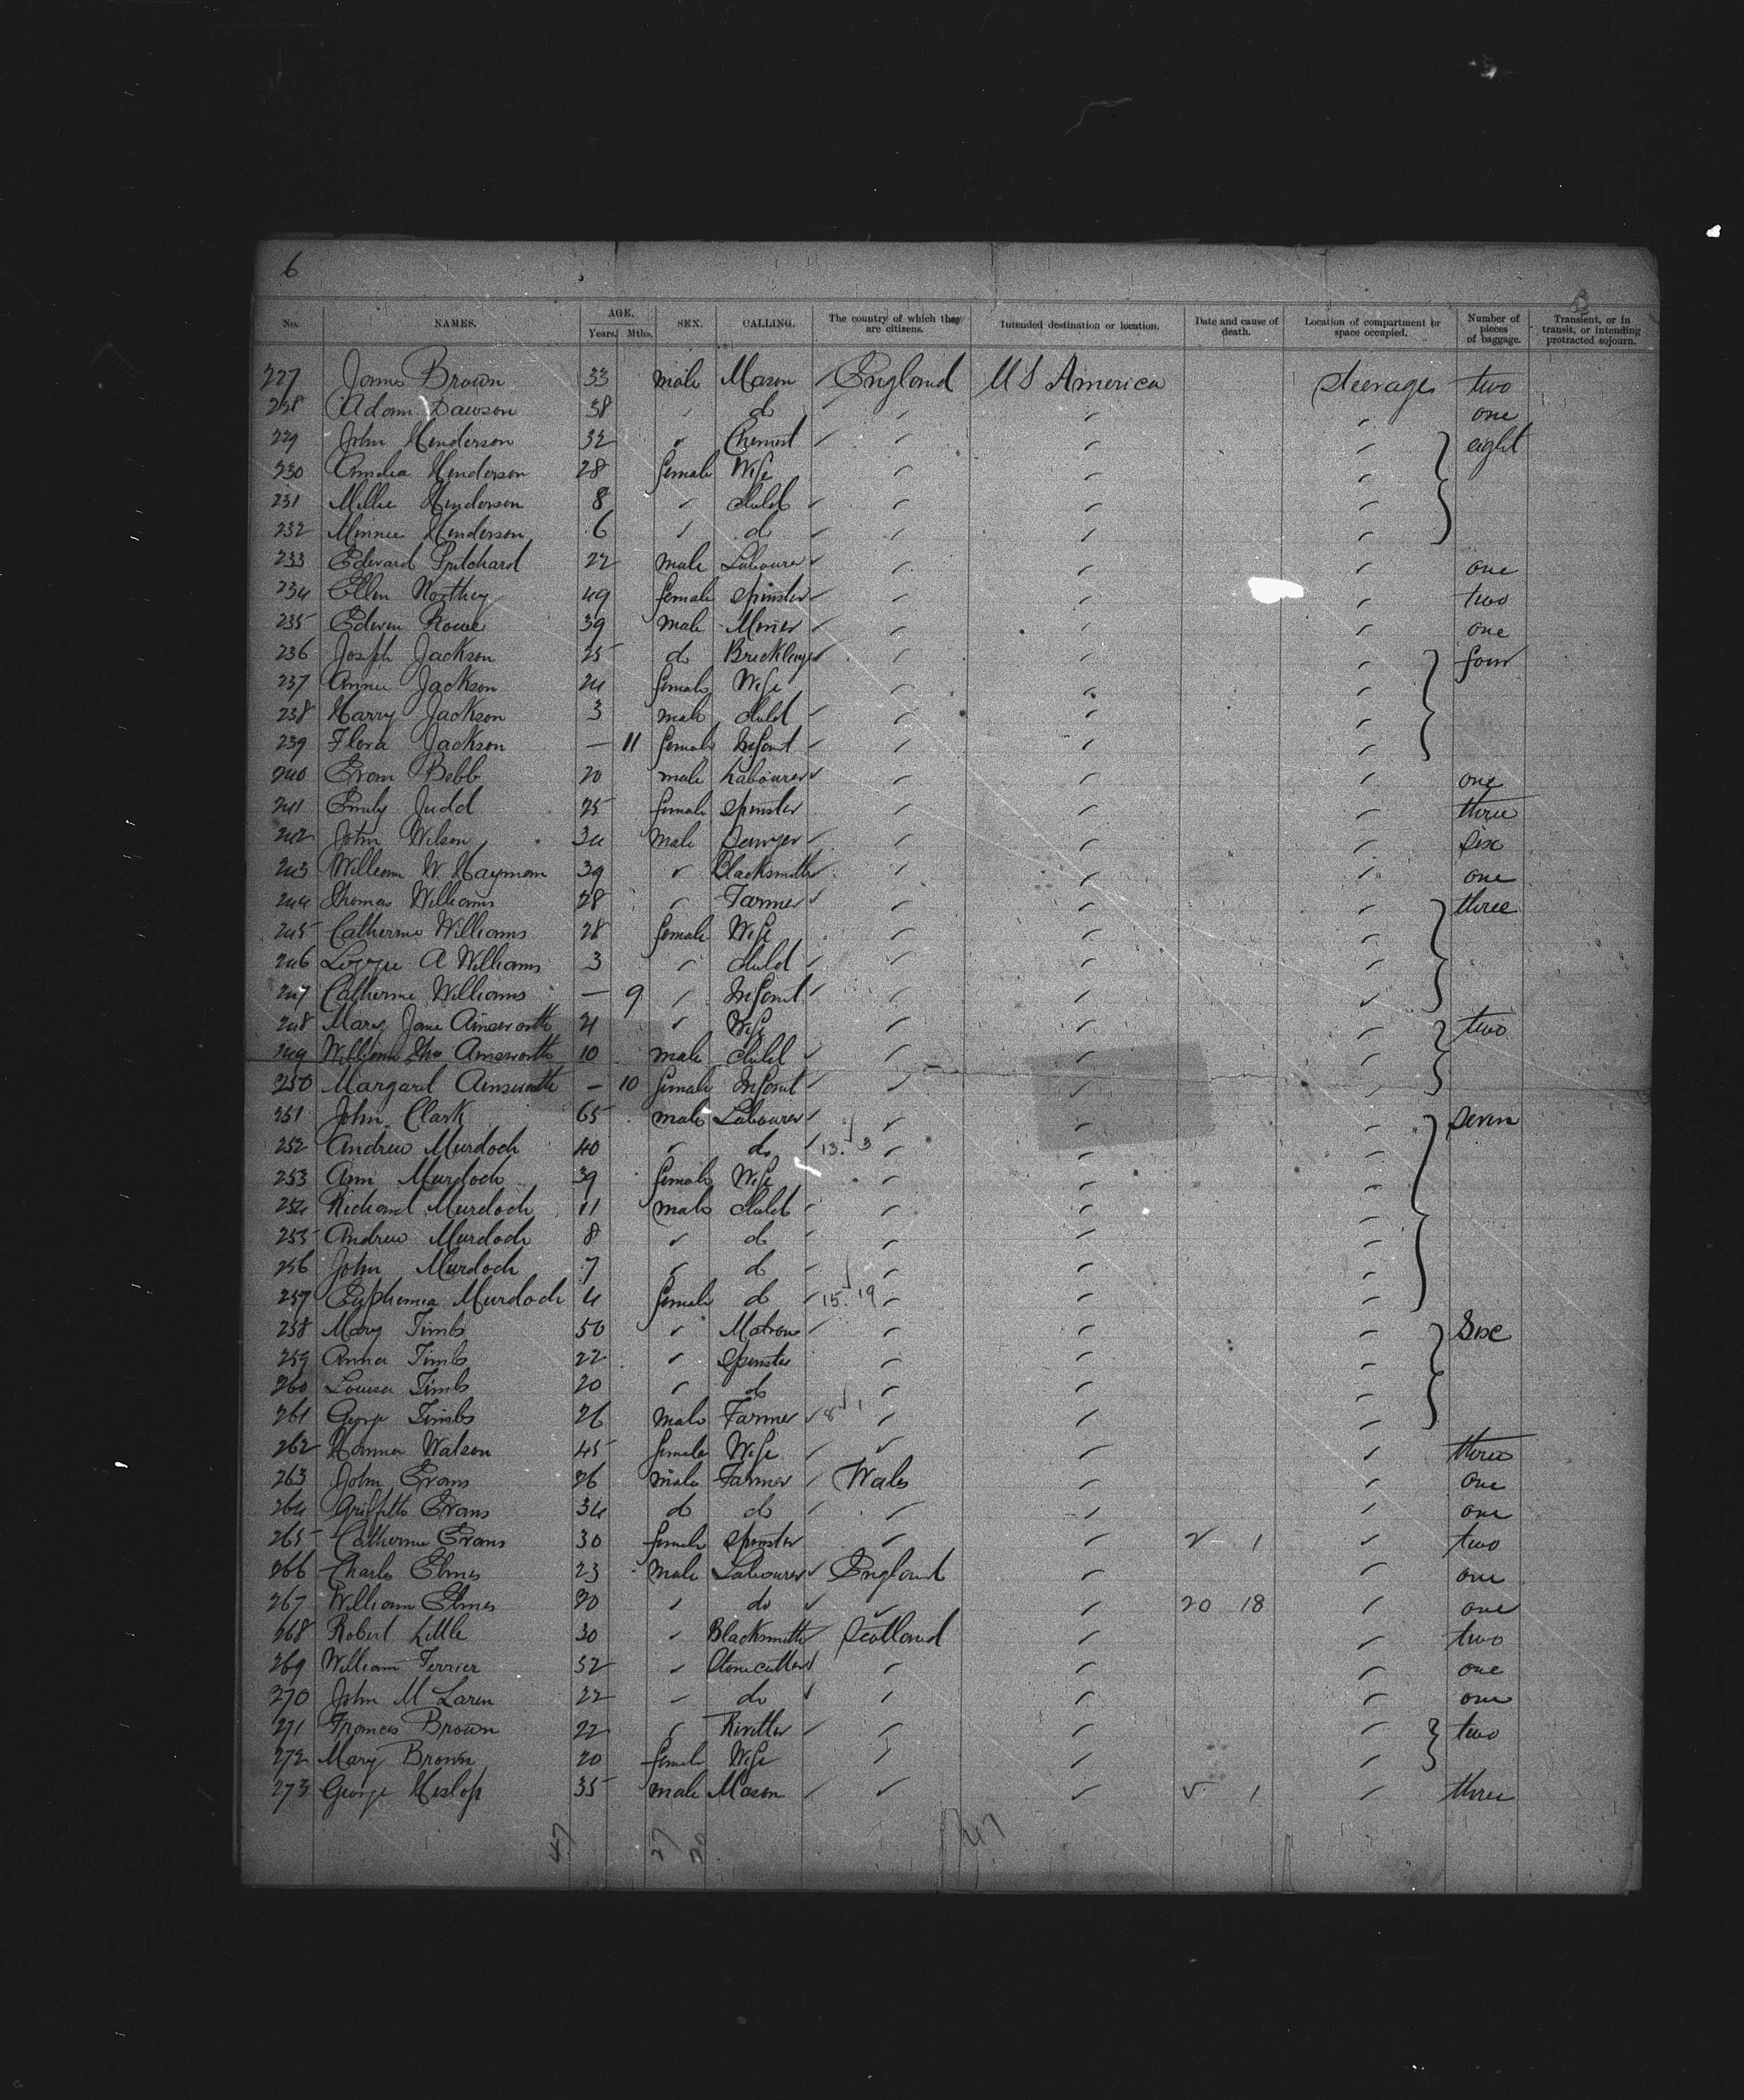 6
No. NAMES. AGE. Years. Mths. SEX. CALLING. The country of which they are citizens. Intended destination or location. Date and cause of death. Location of compartment or space occupied. Number of pieces of baggage. Transient, or in transit, or intending protracted sojourn.
227 James Brown 33 male Mason England U S America Steerage two
228 Adam Dawson 38 do one
229 John Henderson 32 Chemist eight
230 Amelia Henderson 28 female Wife
231 Millie Henderson 8 child
232 Minnie Henderson 6 do
233 Edward Pritchard 22 male Labourer one
234 Ellen Northey 49 female spinster two
235 Edwin Rowe 39 male Miner one
236 Joseph Jackson 25 do Bricklayer four
237 Annie Jackson 24 female Wife
238 Harry Jackson 3 male child
239 Flora Jackson — 11 female Infant
240 Evan Bebb 20 male Labourer one
241 Emily Judd 25 female spinster three
242 John Wilson 34 male Sawyer six
243 William W. Hayman 39 Blacksmith one
244 Thomas Williams 28 Farmer three
245 Catherine Williams 28 female Wife
246 Lizzie A Williams 3 child
247 Catherine Williams — 9 Infant
248 Mary Jane Ainsworth 21 Wife two
249 William Thos Ainsworth 10 male child
250 Margaret Ainsworth — 10 female Infant
251 John Clark 65 male Labourer Seven
252 Andrew Murdoch 40 do 13. 3
253 Ann Murdoch 39 female Wife
254 Richard Murdoch 11 male child
255 Andrew Murdoch 8 do
256 John Murdoch 7 do
257 Euphemia Murdoch 4 female do 15. 19
258 Mary Timbs 50 Matron Six
259 Anna Timbs 22 Spinster
260 Louisa Timbs 20 do
261 George Timbs 26 male Farmer 8 1
262 Hanna Watson 45 female Wife three
263 John Evans 26 male Farmer Wales one
264 Griffith Evans 34 do do one
265 Catherine Evans 30 female Spinster 2 1 two
266 Charles Elmes 23 male Labourer England one
267 William Elmes 20 do 20 18 one
268 Robert Little 30 Blacksmith Scotland two
269 William Ferrier 32 Stonecutter one
270 John McLaren 22 do one
271 Francis Brown 22 Rivetter two
272 Mary Brown 20 female Wife
273 George Heslop 35 male Mason 1 three
47 27 20 47